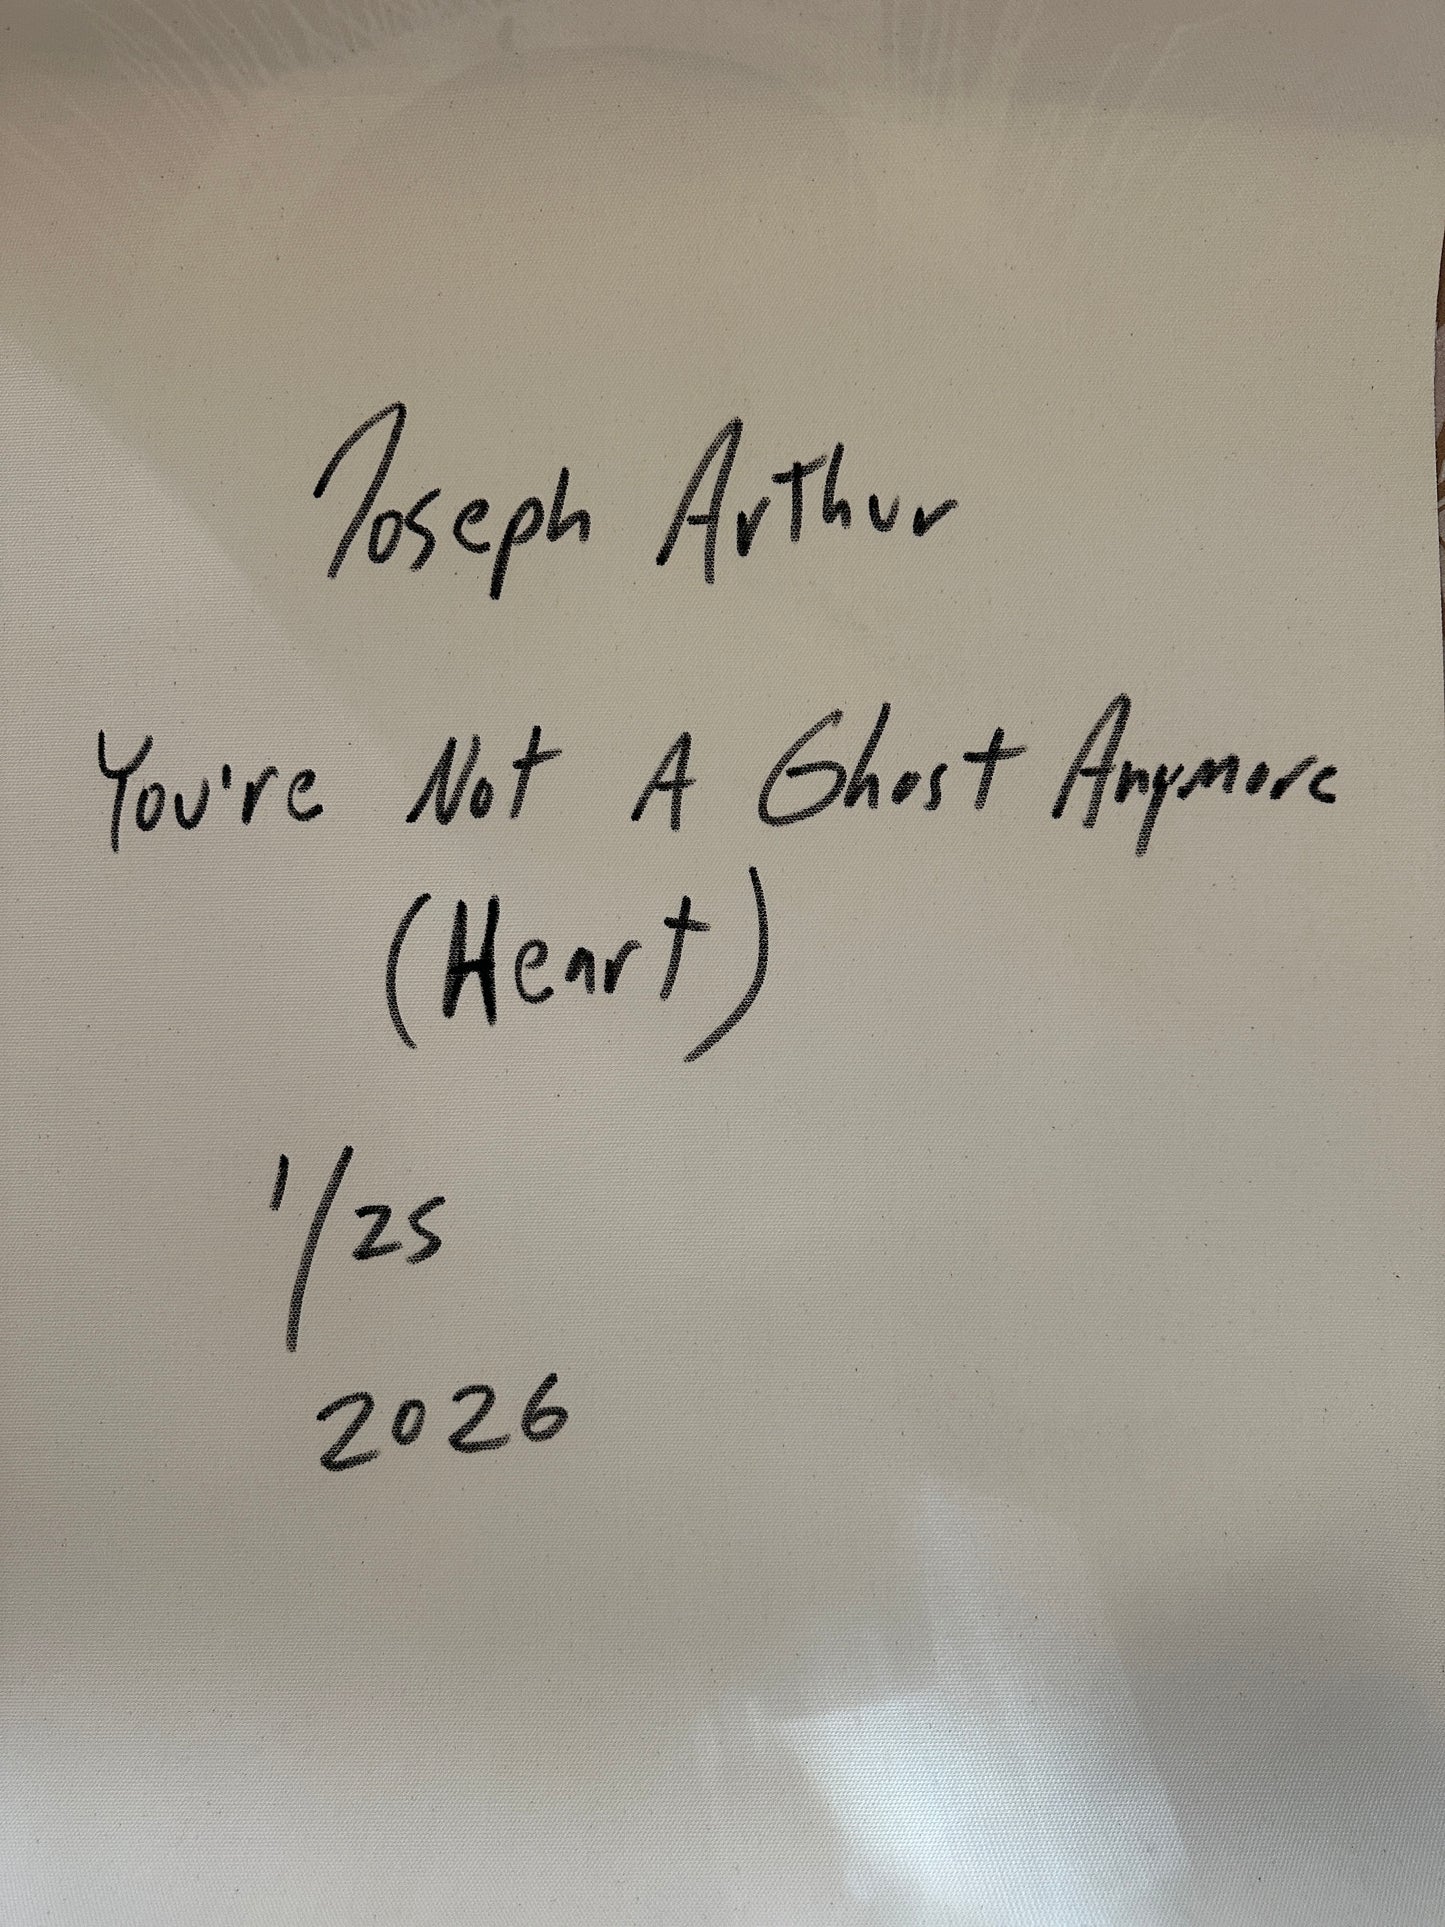 Joseph Arthur
You're Not A Ghost Anymore
(Heart)
1/25
2026